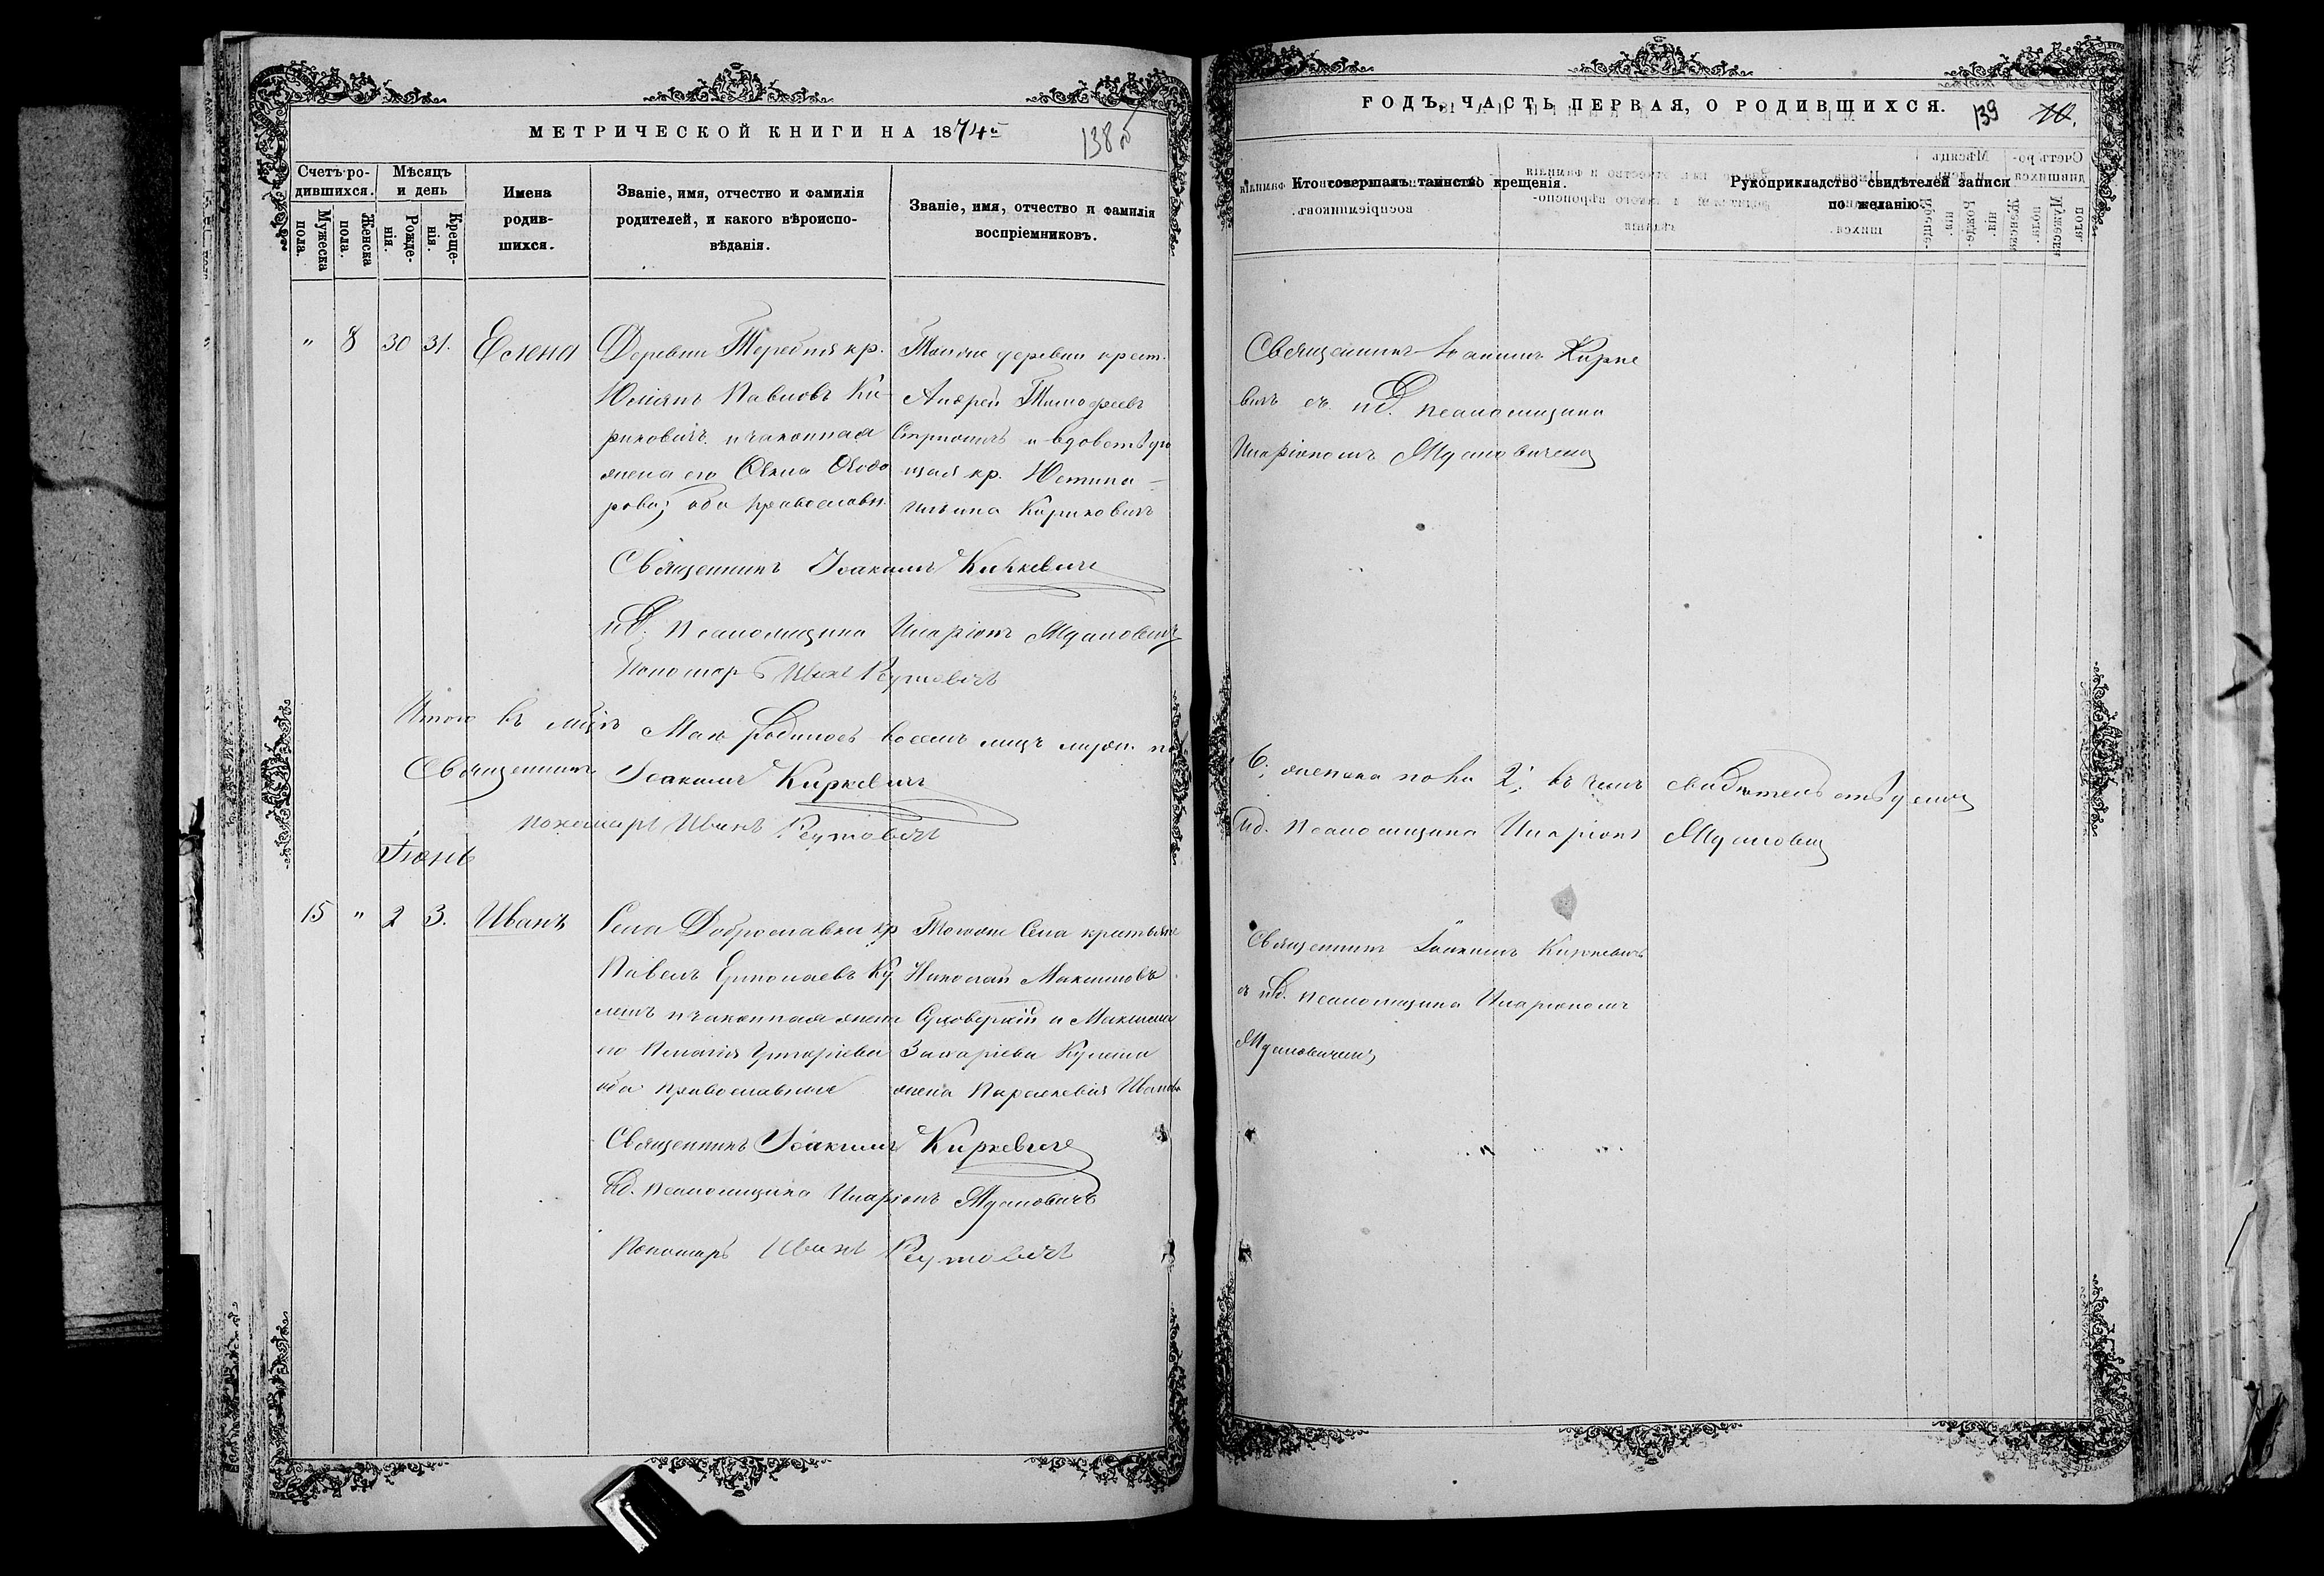 МЕТРИЧЕСКОЙ КНИГИ НА 1874й
138 об
Счетъ ро-
дившихся.
Мужеска
пола.
Женска
пола.
Мѣсяцъ
и день
Рожде-
нія.
Креще-
нія.
Имена
родив-
шихся.
Званіе, имя, отчество и фамилія
родителей, и какого вѣроиспо-
вѣданія.
Званіе, имя, отчество и фамилія
воспріемниковъ.
" 8 30 31. Елена
Деревни Теребня кр.
Юліянъ Павловъ Ки-
риковичъ и законная
жена его Ѳекла Ѳеодо
рова; оба православн.
Тойже деревни крест.
Андрей Тимофеевъ
и вдовствую
щая кр. Юстина
Ильина Кириковичъ
Священникъ Іоакимъ Киркевичъ
ид. Псаломщика Иларіонъ Ждановичъ
Пономарь Иванъ Реутовичъ
Итого въ мцѣ Маѣ родилось восемь лицъ мужеск. по
Священникъ Іоакимъ Киркевичъ
пономарь Иванъ Реутовичъ
Іюнь
15 " 2 3. Иванъ
Села Доброславки кр
Павелъ Ермолаевъ Ку
лешъ и законная жена
его Пелагія Григоріева
оба православные
Тогоже Села крестьяне
Николай Максимовъ
Суховерхій и Максима
Захаріева Кулеша
жена Параскевія Иванова
Священникъ Іоакимъ Киркевичъ
ид. псаломщика Иларіонъ Ждановичъ
Пономарь Иванъ Реутовичъ
ГОДЪ, ЧАСТЬ ПЕРВАЯ, О РОДИВШИХСЯ.
139 10.
Кто совершалъ таинство крещенія.
Рукоприкладство свидѣтелей записи
по желанію.
Священникъ Іоакимъ Кирке
вичъ съ ид. псаломщика
Иларіономъ Ждановичемъ
6. женска пола 2; въ чемъ свидѣтельствуемъ
ид. псаломщика Иларіонъ Ждановичъ
Священникъ Іоакимъ Киркевичъ
съ ид. псаломщика Иларіономъ
Ждановичемъ